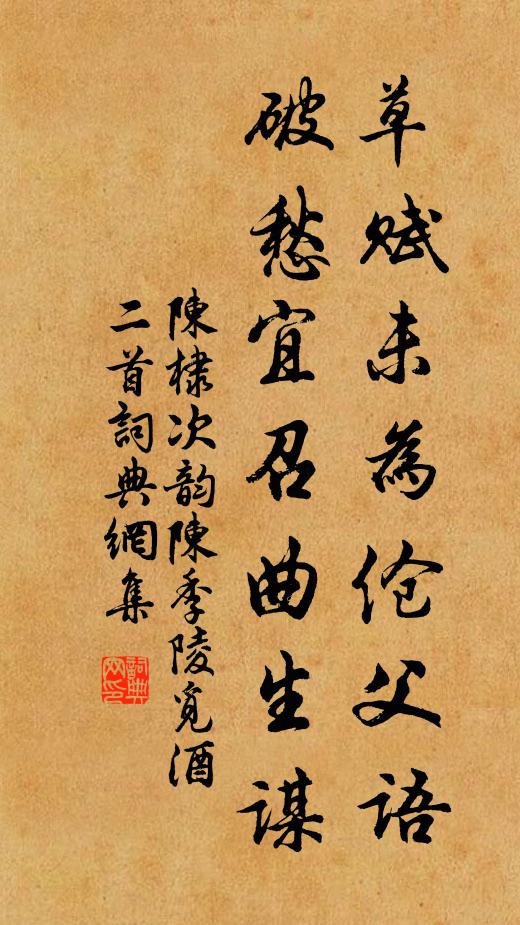 草赋未為伧父语
破愁宜召曲生谋
陳棣次韵陳季陵觅酒
二首詞典網集
詞典
网印